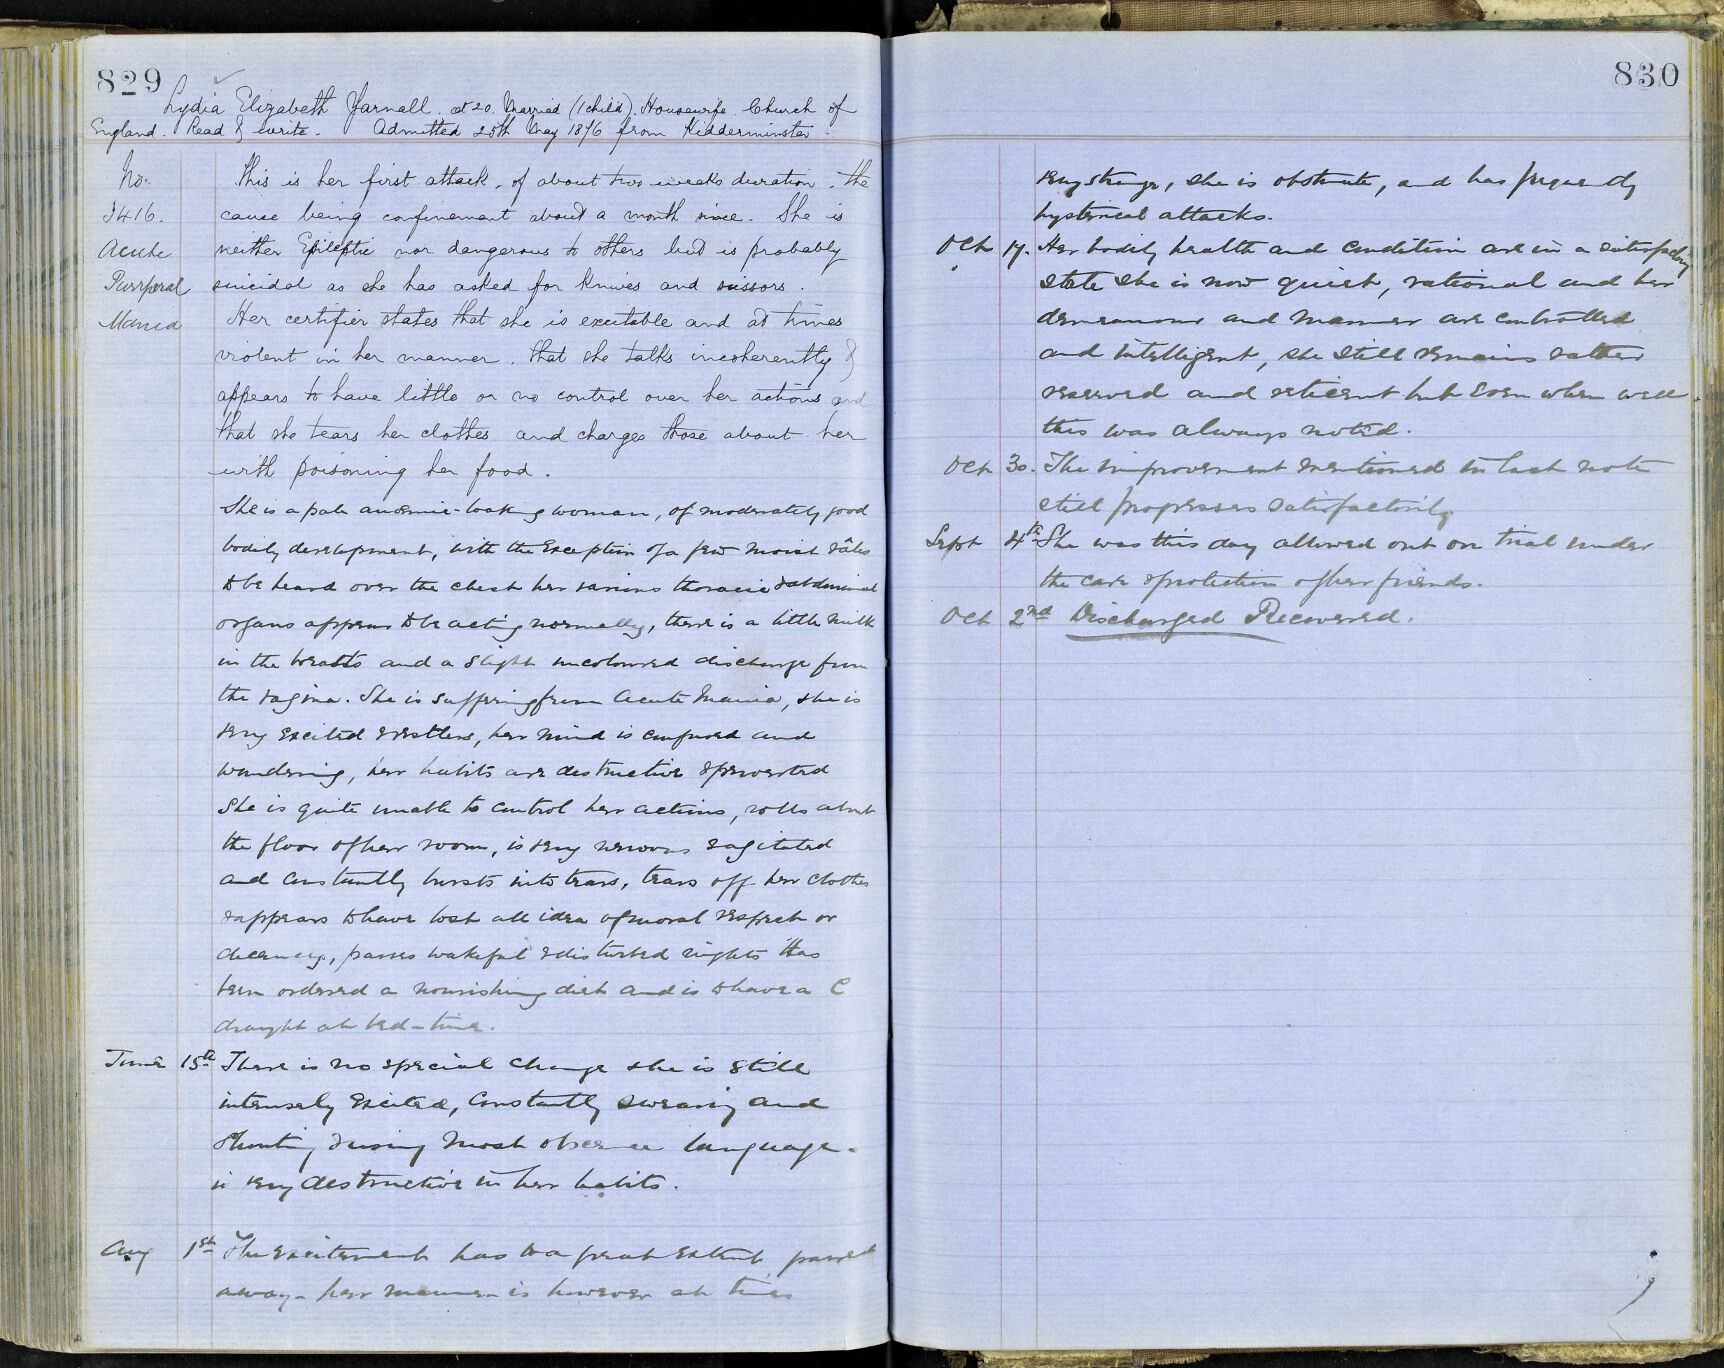 829
Lydia Elizabeth Yarnall. æt 20. Married (1 child). Housewife. Church of
England. Read & write. Admitted 25th May 1876 from Kidderminster.
No.
3416.
Acute
Puerperal
Mania
This is her first attack, of about two weeks duration, the
cause being confinement about a month since. She is
neither Epileptic nor dangerous to others but is probably
suicidal as she has asked for knives and scissors.
Her certifier states that she is excitable and at times
violent in her manner. that she talks incoherently &
appears to have little or no control over her actions and
that she tears her clothes and charges those about her
with poisoning her food.
She is a pale anœmic-looking woman, of moderately good
bodily development, with the exception of a few moist râles
to be heard over the chest her various thoracic & abdominal
organs appear to be acting normally, there is a little milk
in the breasts and a slight uncoloured discharge from
the vagina. She is suffering from Acute Mania, she is
very excited & restless, her mind is confused and
wandering, her habits are destructive & perverted
She is quite unable to control her actions, rolls about
the floor of her room, is very nervous & agitated
and constantly bursts into tears, tears off her clothes
& appears to have lost all idea of moral respect or
decency, passes wakeful & disturbed nights Has
been ordered a nourishing diet and is to have a C
draught at bed-time.
June 15th There is no special change she is still
intensely excited, constantly swearing and
shouting & using most obscene language -
is very destructive in her habits.
Aug 1st The excitement has to a great extent passed
away - her manner is however at times
830
very strange, she is obstinate, and has frequently
hysterical attacks.
Oct 17. Her bodily health and condition are in a satisfactory
state she is now quiet, rational and her
demeanour and manner are controlled
and intelligent, she still remains rather
reserved and reticent but even when well
this was always noted.
Oct 30. The improvement mentioned in last note
still progresses satisfactorily
Sept 4th She was this day allowed out on trial under
the care & protection of her friends.
Oct 2nd Discharged Recovered.